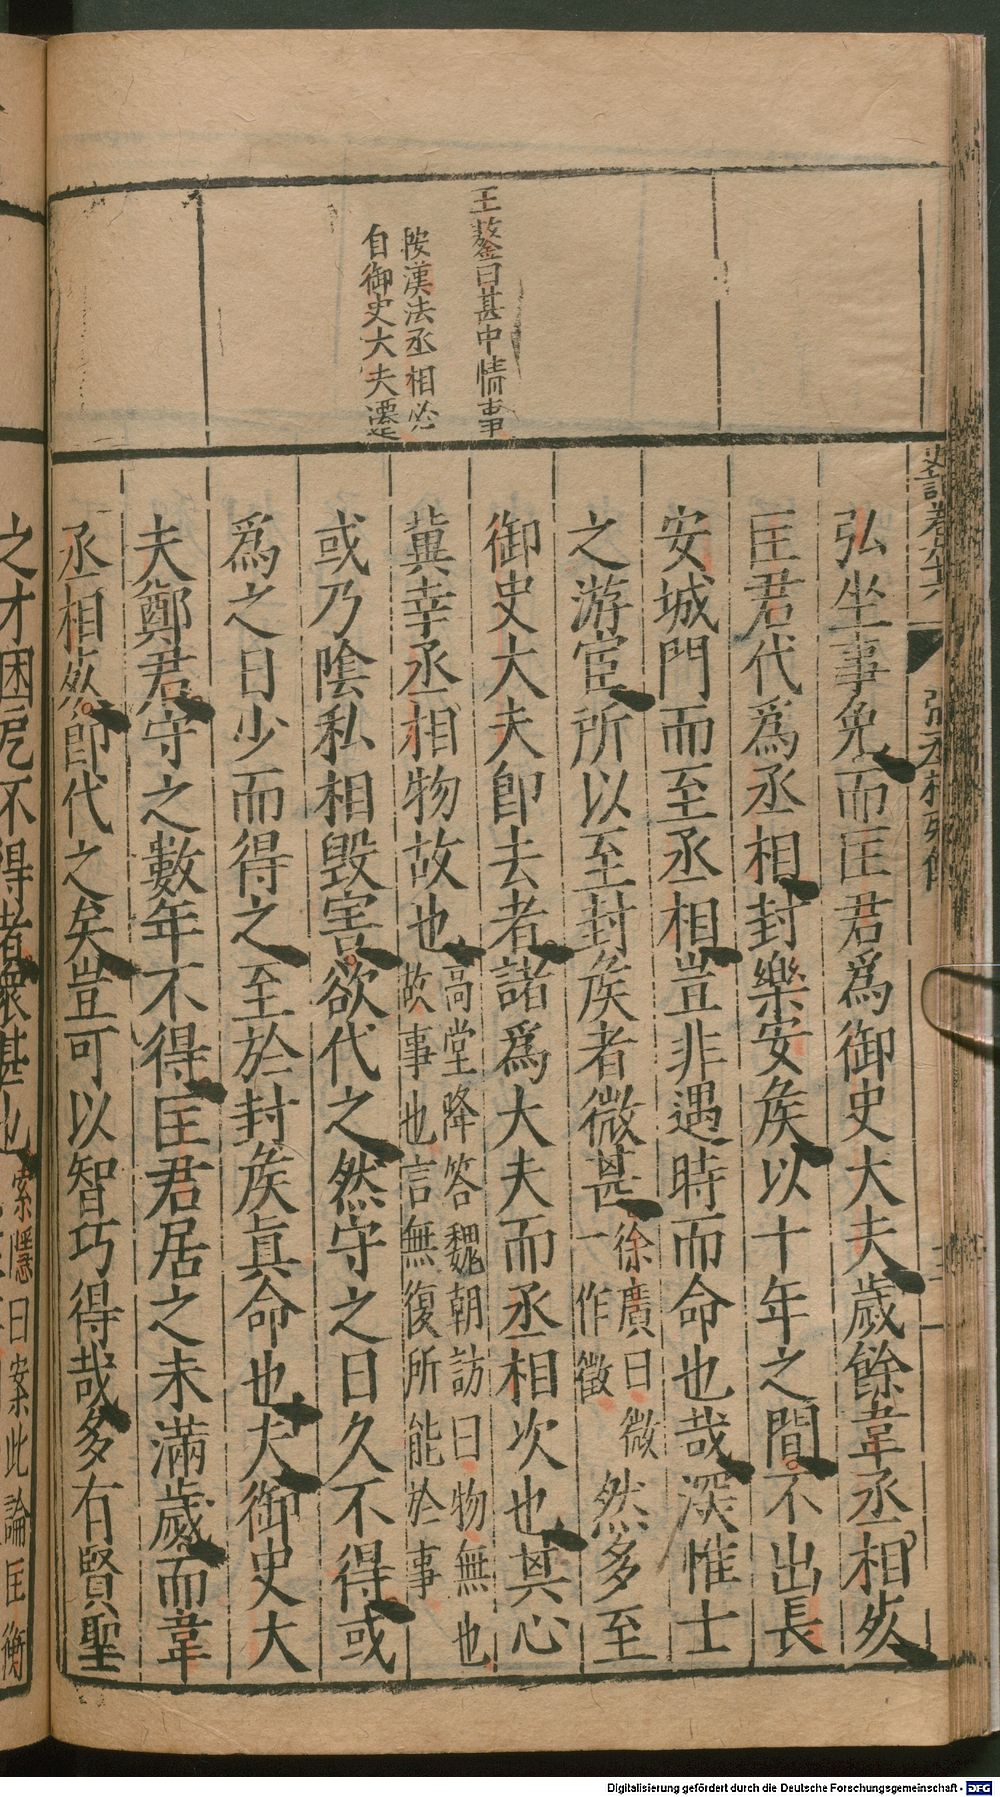 史記卷九十六
張丞相列傳
王鏊曰甚中情事
按漢法丞相必
自御史大夫遷
弘坐事免而匡君爲御史大夫歲餘韋丞相死
匡君代爲丞相封樂安矦以十年之間不出長
安城門而至丞相豈非遇時而命也哉深惟士
之游宦所以至封矦者微甚徐廣曰微一作徵然多至
御史大夫卽去者諸爲大夫而丞相次也其心
冀幸丞相物故也高堂隆答魏朝訪曰物無也故事也言無復所能於事
或乃陰私相毀害欲代之然守之日久不得或
爲之日少而得之至於封矦眞命也夫御史大
夫鄭君守之數年不得匡君居之未滿歲而韋
丞相死卽代之矣豈可以智巧得哉多有賢聖
之才困戹不得者衆甚也索隱曰案此論匡衡
Digitalisierung gefördert durch die Deutsche Forschungsgemeinschaft - DFG